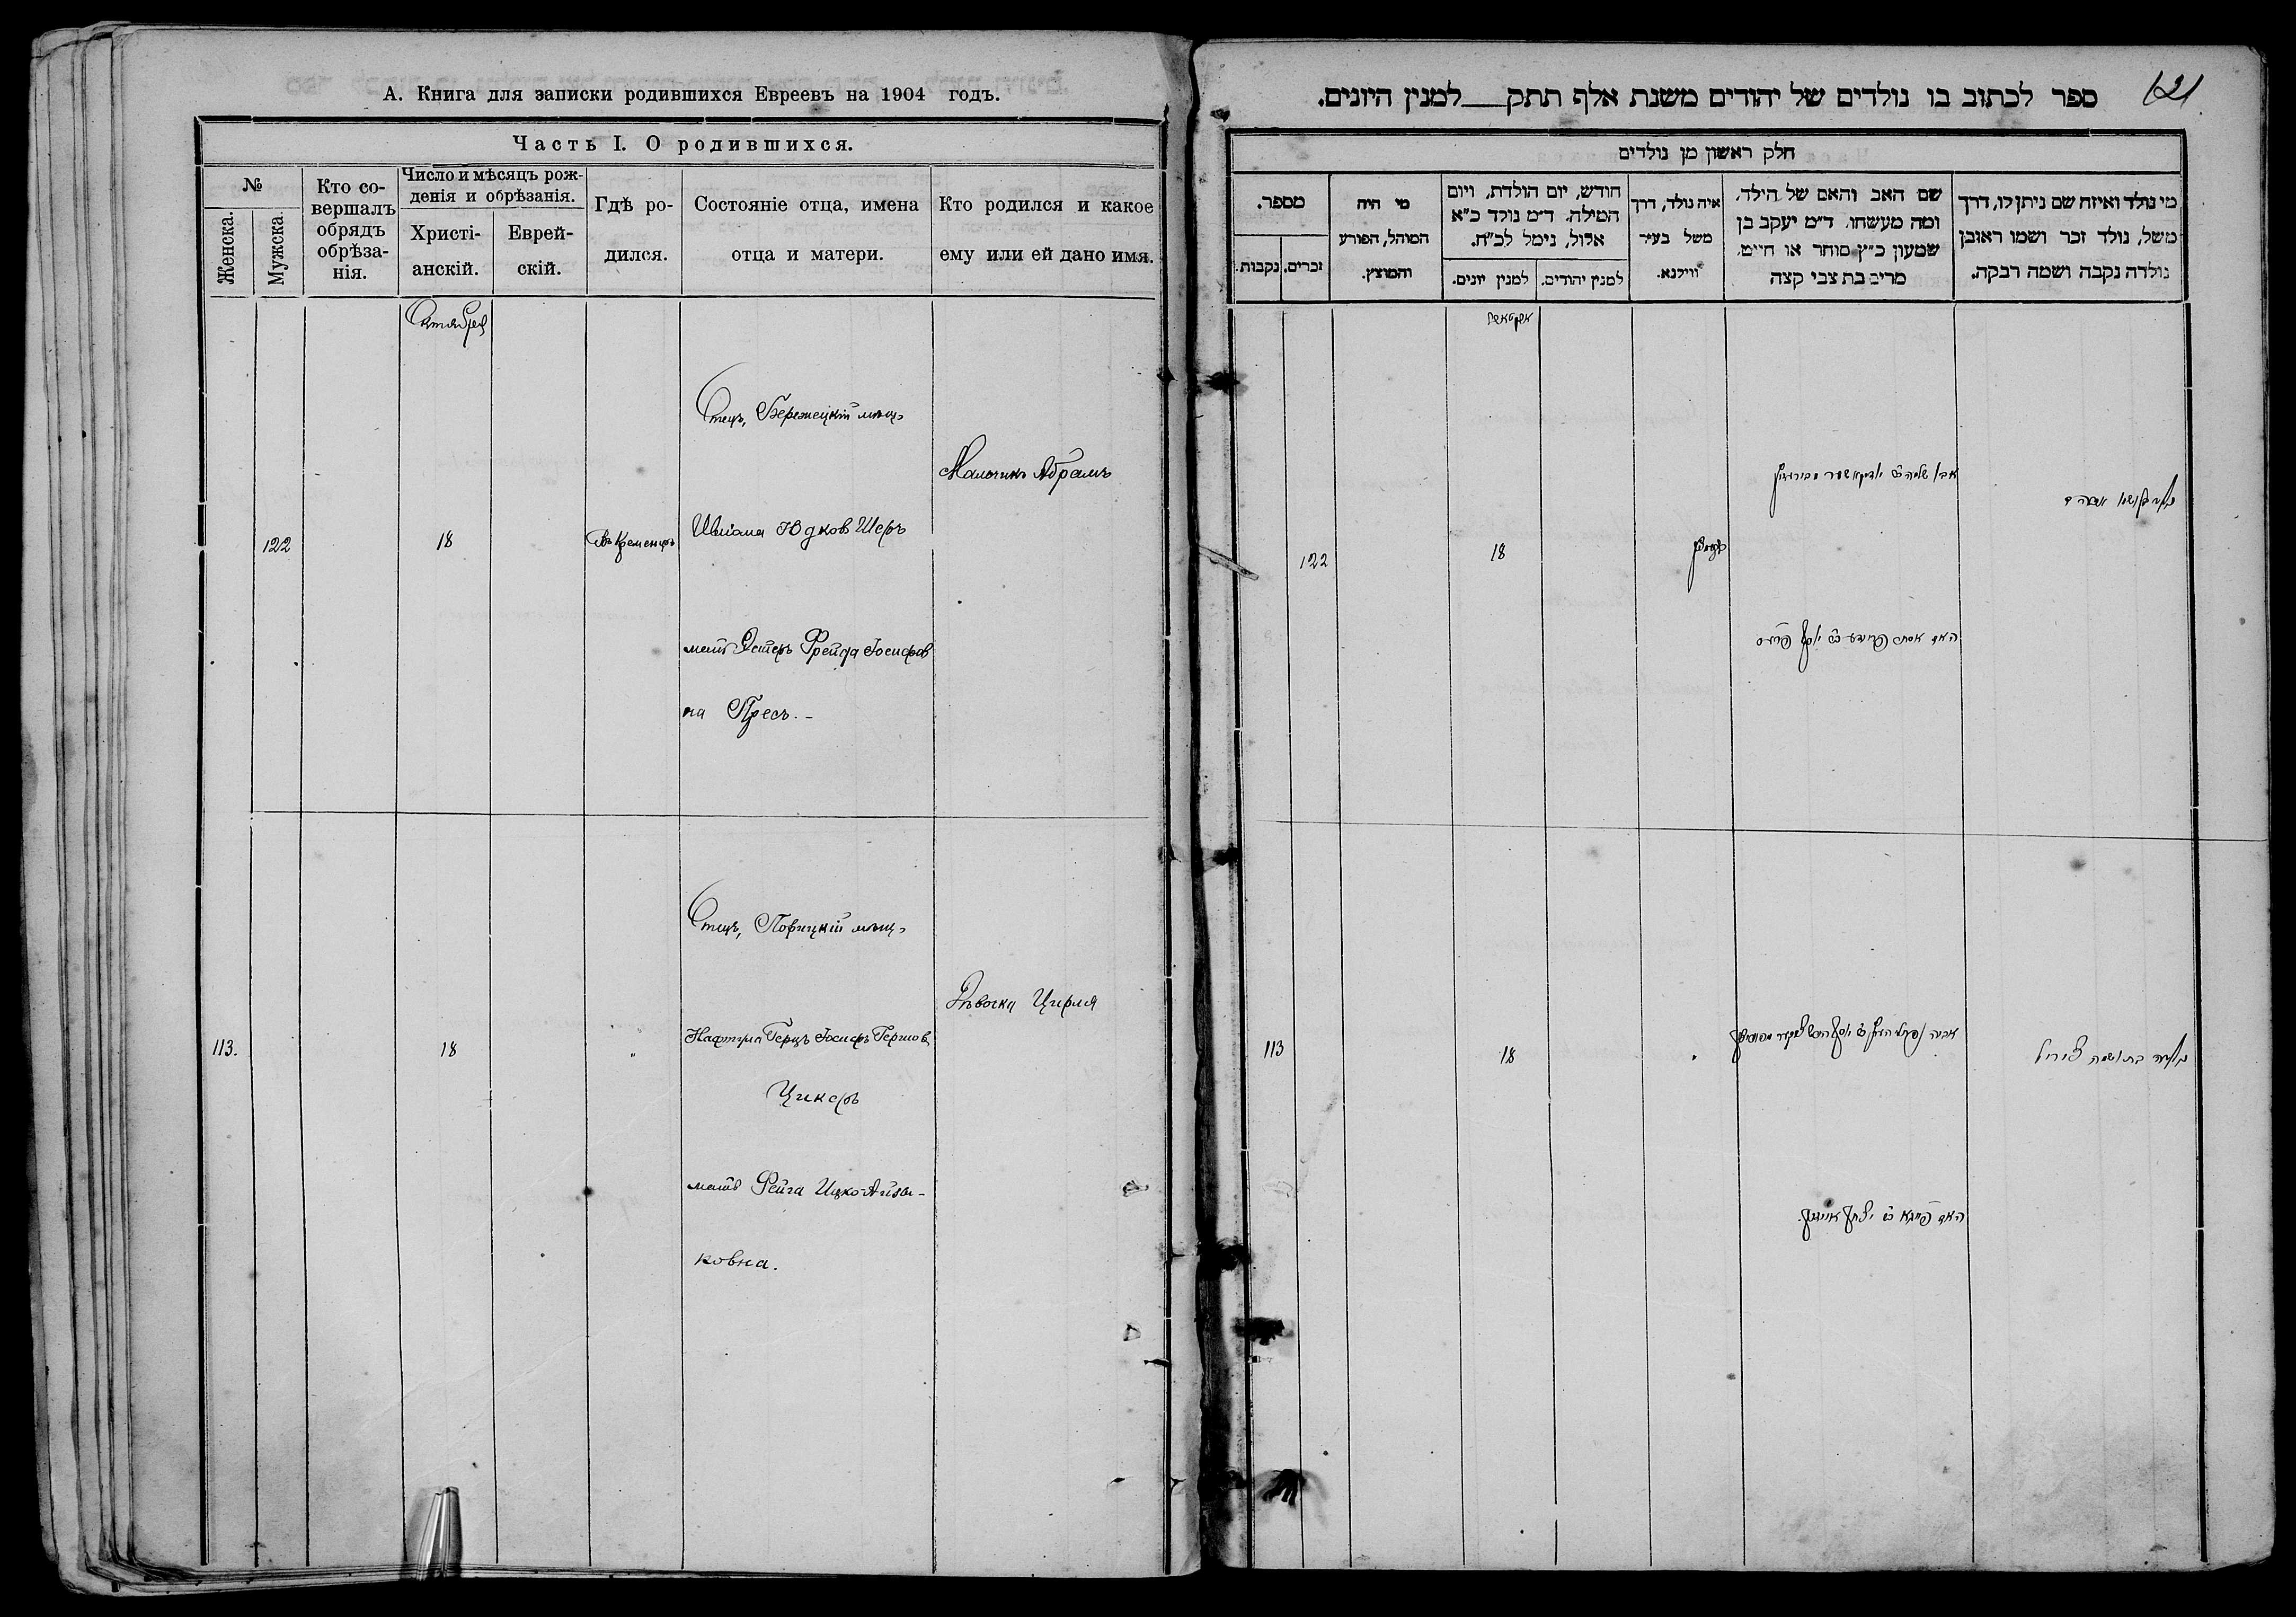 А. Книга для записки родившихся Евреевъ на 1904 годъ.
Часть I. О родившихся.
№
Женска.
Мужска.
Кто со-
вершалъ
обрядъ
обрѣза-
нія.
Число и мѣсяцъ рож-
денія и обрѣзанія.
Христі-
анскій.
Еврей-
скій.
Гдѣ ро-
дился.
Состояніе отца, имена
отца и матери.
Кто родился и какое
ему или ей дано имя.
Октября
122
18
Въ Кременцѣ
Отецъ, Бережецкій мѣщ.
Шлiома Юдков Шеръ
мать Эстеръ Фрейда Іосифов
на Пресъ. -
Мальчикъ Абрамъ
113.
18
"
Отецъ, Порицкій мѣщ.
Нафтула Герцъ Іосифъ Гершов.
Цикеръ
мать Фейга Ицко-Айзи-
ковна.
Дѣвочка Цирля
121
ספר לכתוב בו נולדים של יהודים משנת אלף תתק למנין היונים.
חלק ראשון מן נולדים
מספר.
נקבות.
זכרים.
מי היה
המוהל, הפורע
והמוצץ.
חודש, יום הולדת, ויום
המילה. ד״מ נולד כ״א
אלול, נימל לכ״ח.
למנין יונים.
למנין יהודים.
איה נולד, דרך
משל בעיר
ווילנא.
שם האב והאם של הילד,
ומה מעשהו. ד״מ יעקב בן
שמעון כ״ץ סוחר או חייט,
מרים בת צבי קצה
מי נולד ואיזה שם ניתן לו, דרך
משל, נולד זכר ושמו ראובן
נולדה נקבה ושמה רבקה.
122
18
113
18
האם פייגא